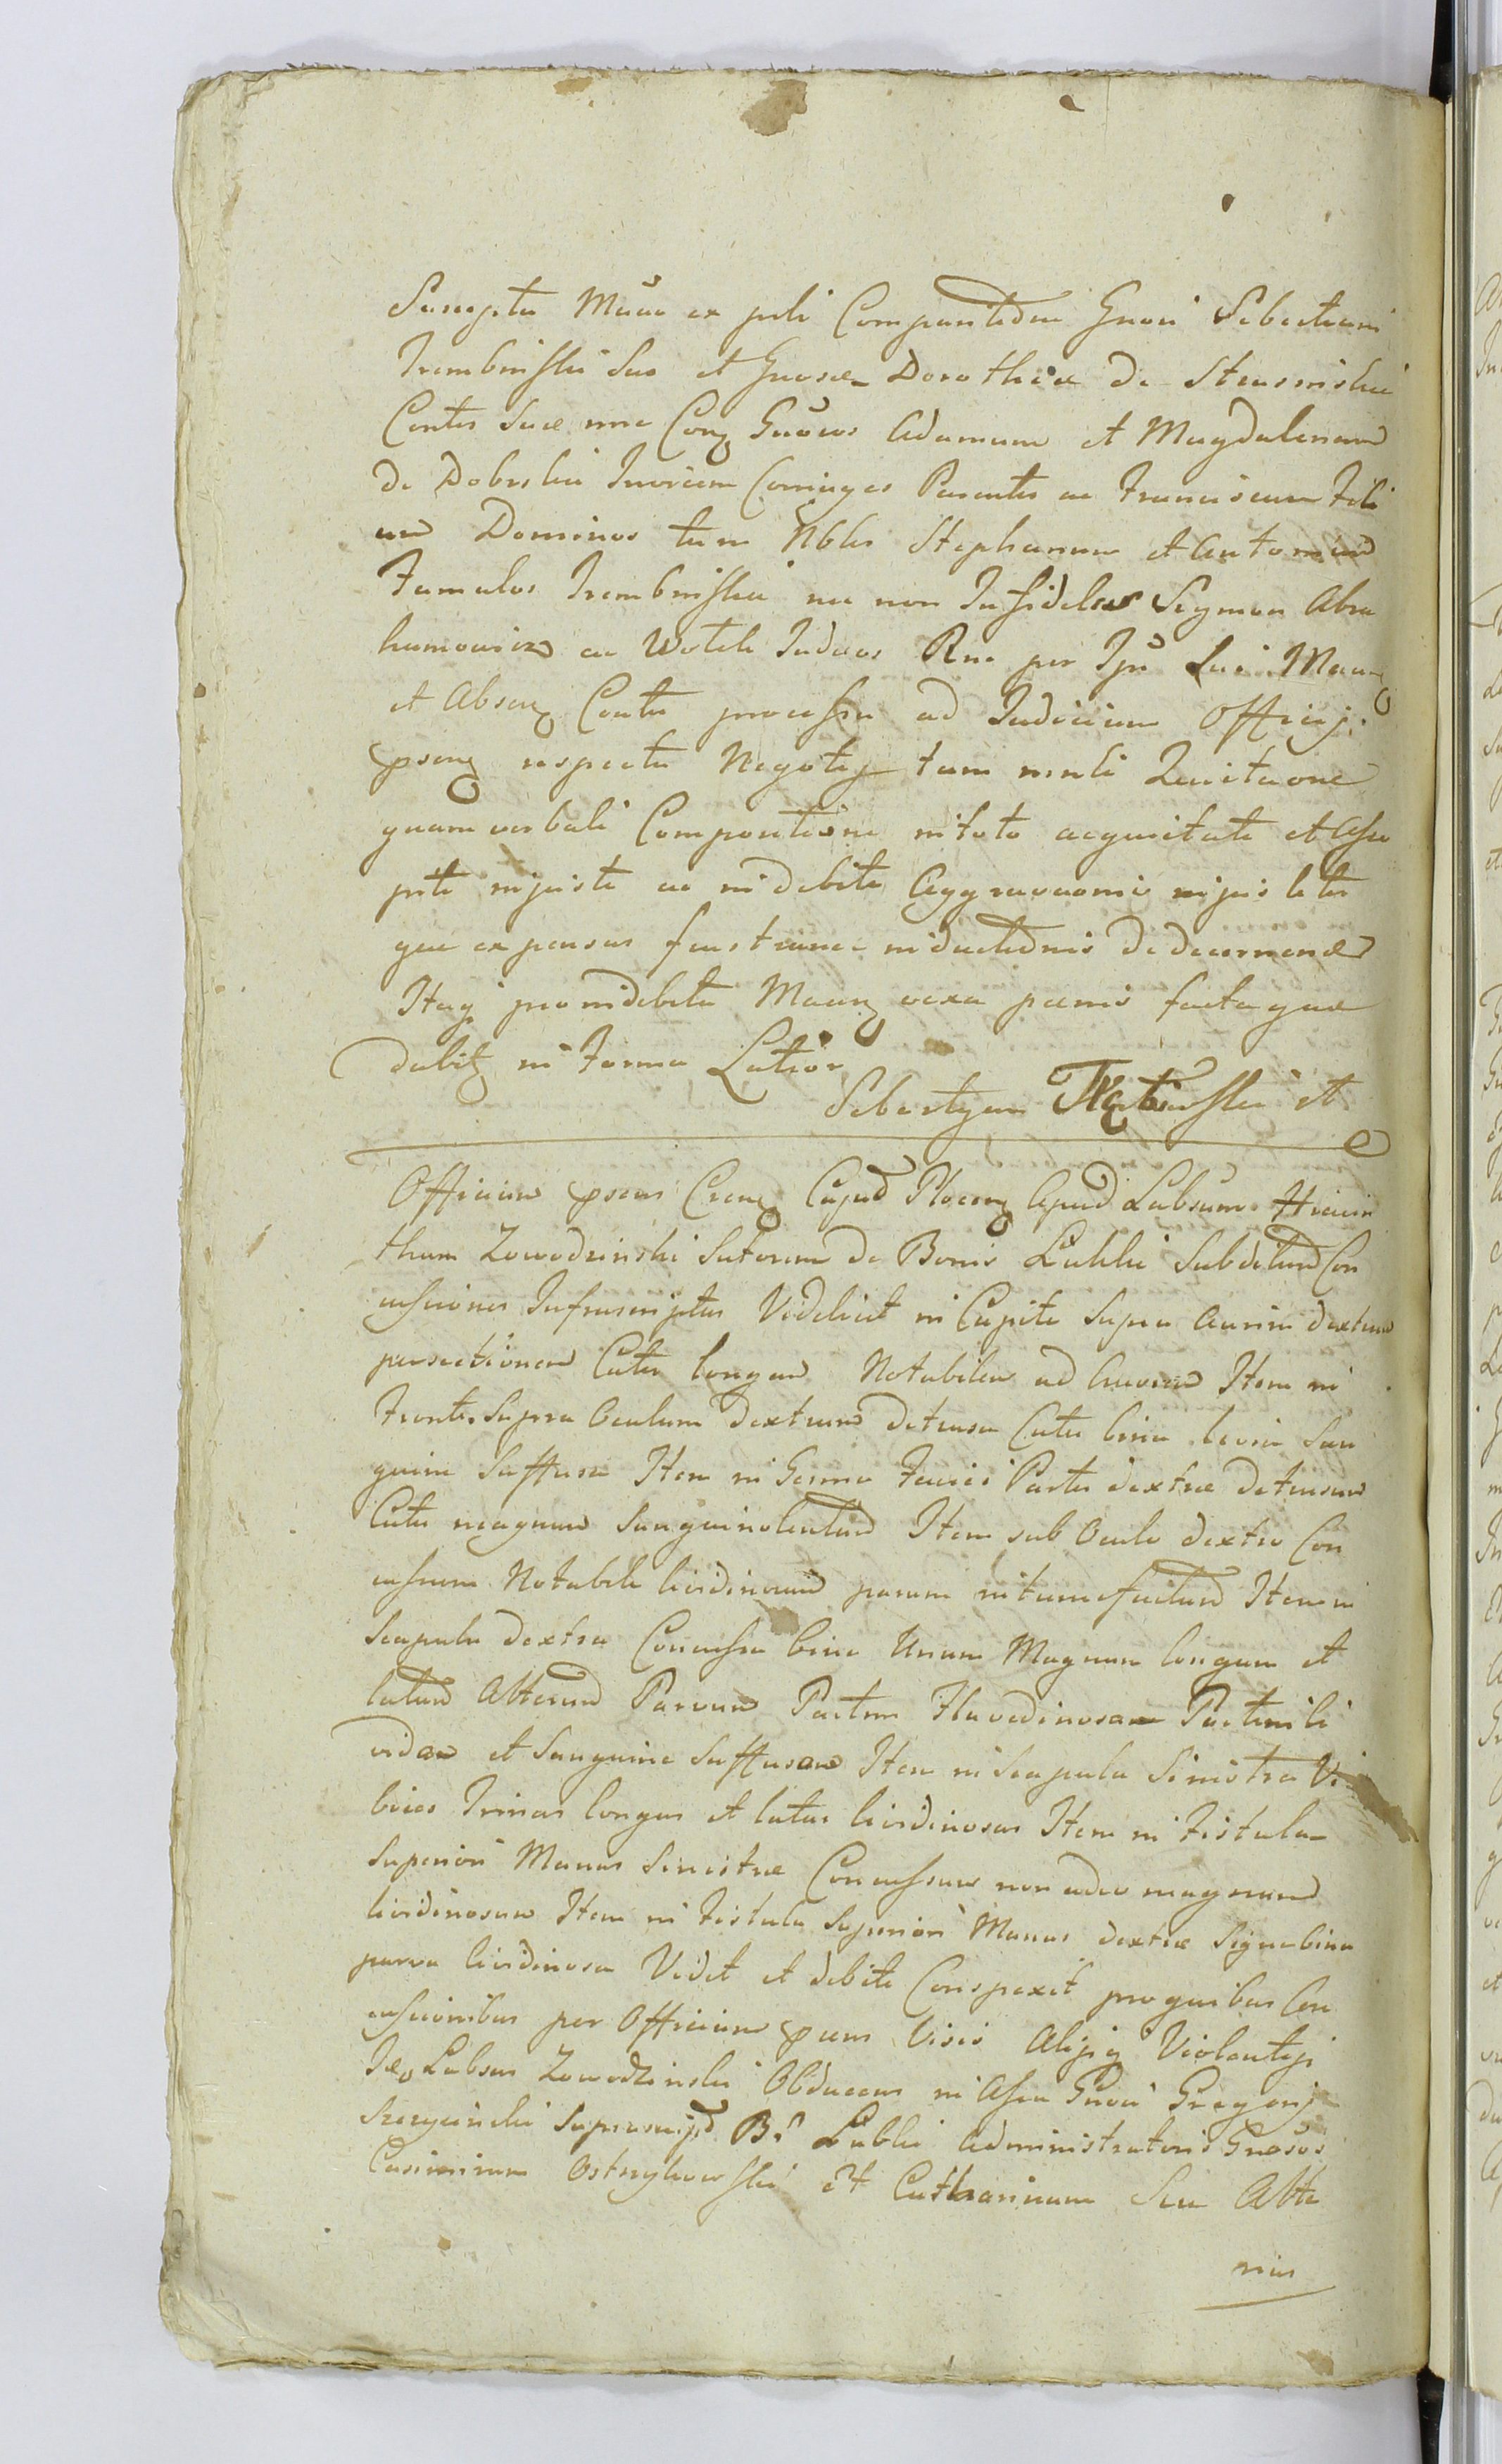 Sumpta Maãe ex preli Comparitedne Gnosi Sebastiani
Trembinski Suo et Gnosae Dorotheae de Strusinskie
Contes Suae nne Conq Gnõsos Adamum et Magdalenam
de Dobrskie Invicem Coniuges Parentes ac Franciscum Fili
um Dominos tum Nbles Stephanum et Antonium
Famulos Trembinskie nec non Infideles Szymon Abra
hamowicz ac Wolek Judaeos Rnē per Ipũ Lui Maan
et Absenq Contu processu ad Judicium Officij
pseng respectu Negotij tam nnli Quitaone
quam verbali Compositione in toto acquietate et Assu
pte injuste ac indebite Aggravaonis injus lator
que expensas frustranei inductednis de decernend
Itaq pro indebita Maanq vexa paenis factaque
debitq in Forma Latiõr
Sebestyan Trębinski et
Officium psens Crens Capnd Plocens Apud Labsum Hiacin
thum Zowodzinski Sutorem de Bonis Lubki Subditum Con
cussiones Infrascriptas Videlicet in Capite Supra Aurim dextram
persectionem Cutis longam Notabilem ad Cruorem Item in
Fronte Supra Oculum dextrum detrusa Cutis bina levia San
guine Suffusa Item in Genna Faciei Partis dextrae detrusum
Cutis magnum Sanguinolentum Item sub Oculo dextro Con
cussum Notabile lividinosum parum intumefactum Item in
Scapula dextra Concussa bina Unum Magnum longum et
latum Alterum Parvum Partim Flavedinosam Partim li
vidam et Sanguine Suffusam Item in Scapula Sinistra Vi
bices Trinas longas et latas lividinosas Item in Fistula
Superiori Manus Sinistrae Concussum non adeo magnum
lividinosum Item in Fistula Superiori Manus dextrae Signa bina
parva lividinosa Vidit et debite Conspexit pro quibus Con
cussionibus per Officium psens Visis Alijq Violentijs
Labsus Zowodzinski Obducens in Assa Gnosi Gregorij
suprascrijd B. Lubki Administratoris Gnosos
Casimirum Ostrzykowski et Catharinam Seu Alte
rius